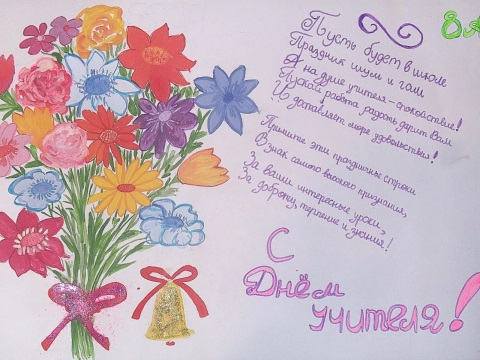 8А
Пусть будет в школе
Праздник шум и гам
А на душе учителя - спокойствие!
Пускай работа радость дарит Вам
И доставляет море удовольствия!
Примите эти праздничные строки
В знак самого высокого признания,
За ваши интересные уроки,
За доброту, терпение и знания!
С
Днём
учителя!